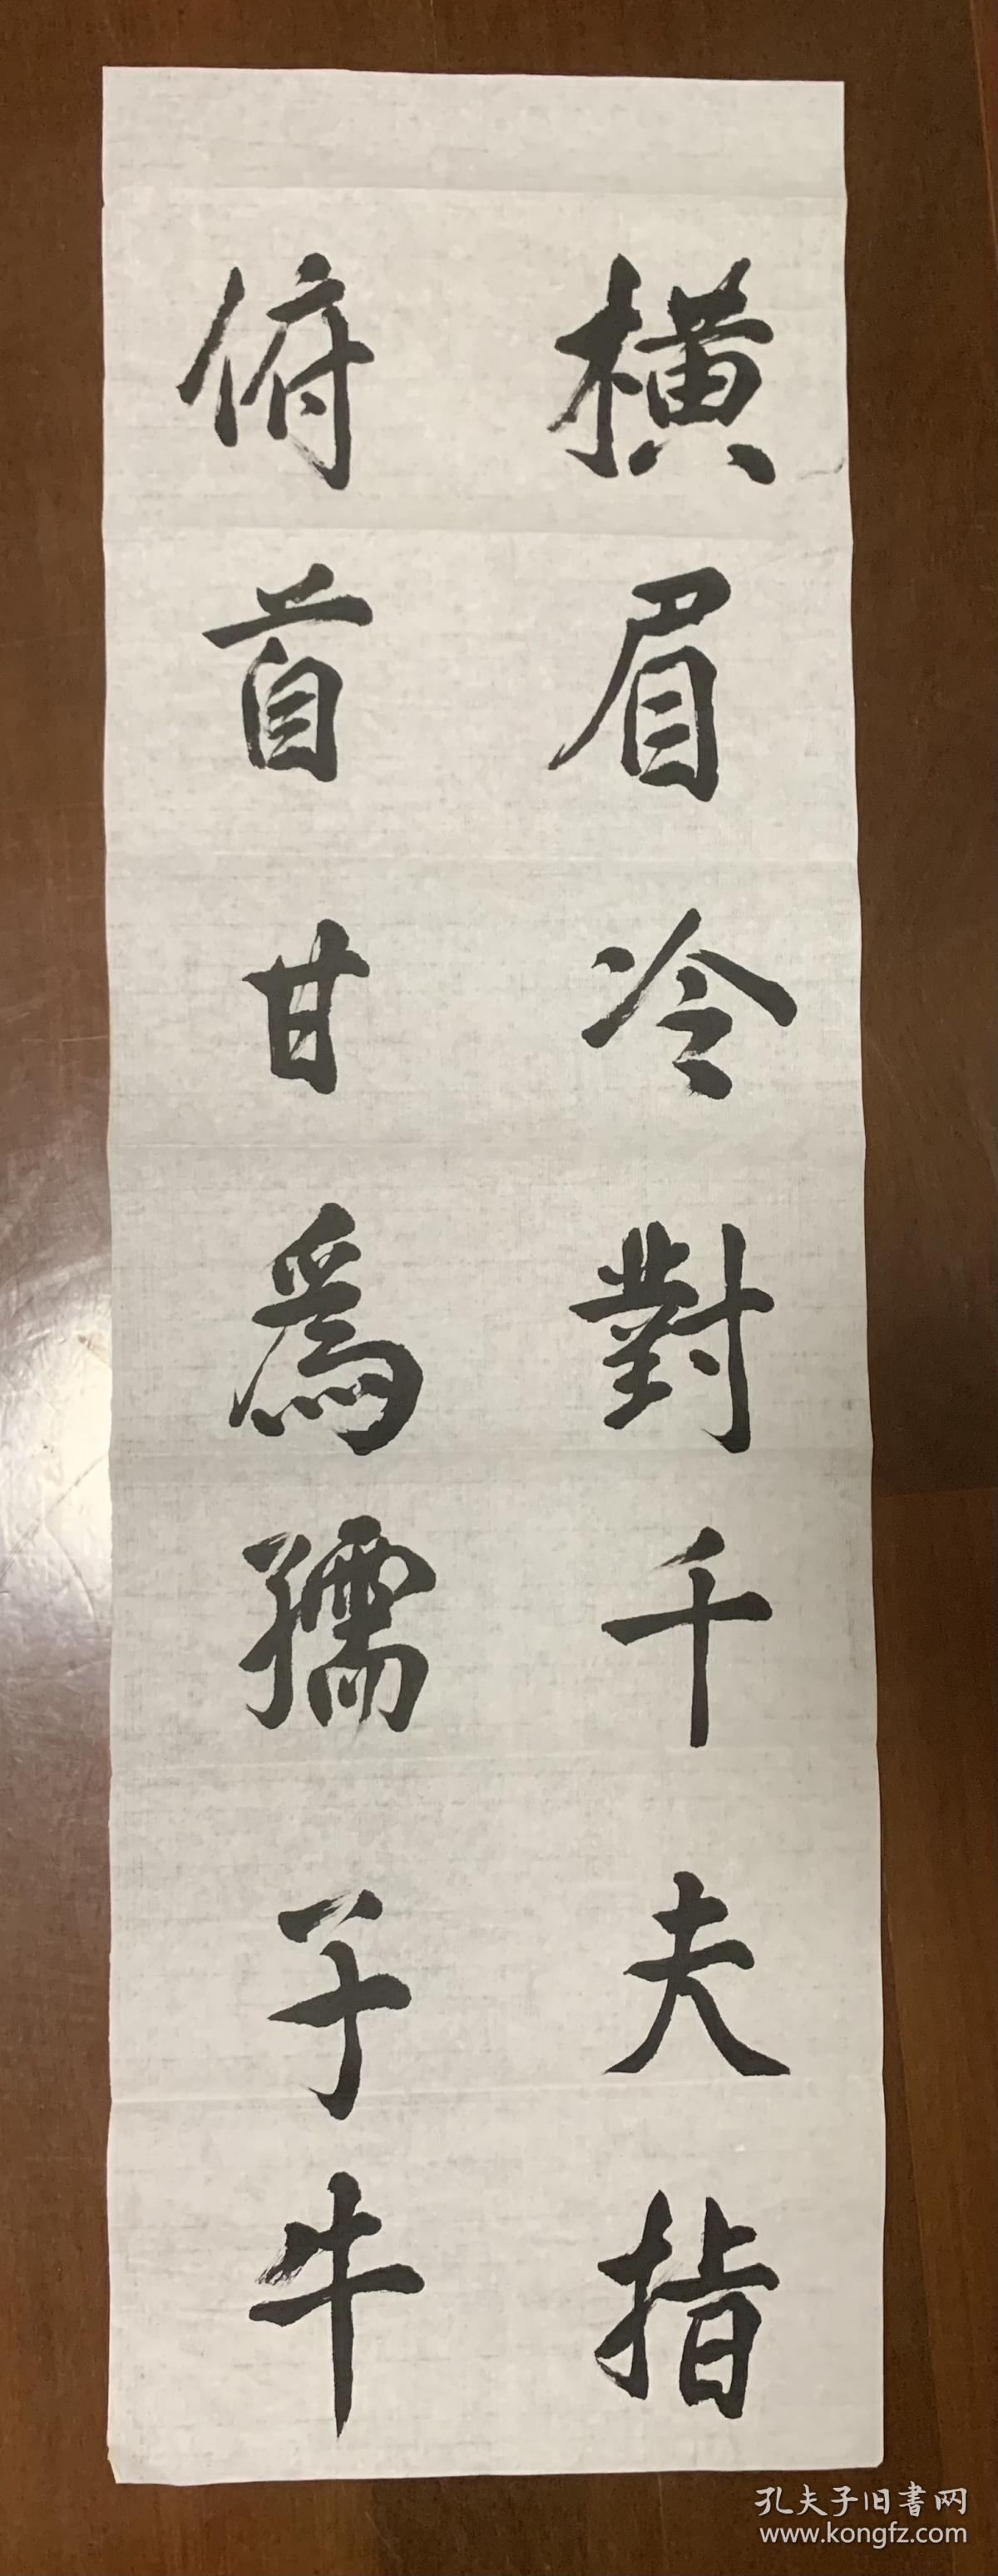 橫眉冷對千夫指
俯首甘爲孺子牛
孔夫子旧書网
www.kongfz.com